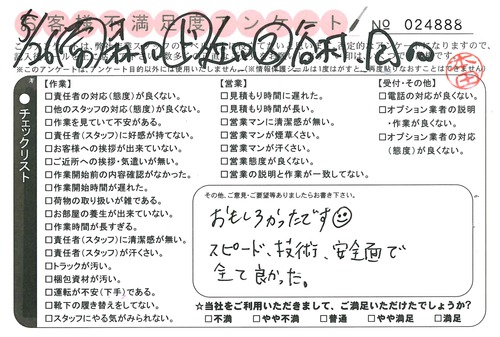 お客様不満足度アンケート
№ 024888
チェックリスト
【作業】
□責任者の対応(態度)が良くない。
□他のスタッフの対応(態度)が良くない。
□作業を見ていて不安がある。
□責任者(スタッフ)に好感が持てない。
□お客様への挨拶が出来ていない。
□ご近所への挨拶・気遣いが無い。
□作業開始前の内容確認がなかった。
□作業開始時間が遅れた。
□荷物の取り扱いが雑である。
□お部屋の養生が出来ていない。
□作業時間が長すぎる。
□責任者(スタッフ)に清潔感が無い。
□責任者(スタッフ)が汗くさい。
□トラックが汚い。
□梱包資材が汚い。
□運転が不安(下手)である。
□靴下の履き替えをしてない。
□スタッフにやる気がみられない。
【営業】
□見積もり時間に遅れた。
□見積もり時間が長い。
□営業マンに清潔感が無い。
□営業マンが煙草くさい。
□営業マンが汗くさい。
□営業態度が良くない。
□営業の説明と作業が一致してない。
【受付・その他】
□電話の対応(態度)が良くない。
□オプション業者の説明
・作業が良くない。
□オプション業者の対応
(態度)が良くない。
その他、ご意見・ご要望等ありましたらお書き下さい。
おもしろかったです
スピード、技術、安全面で
全て良かった。
☆当社をご利用いただきまして、ご満足いただけたでしょうか?
□不満 □やや不満 □普通 □やや満足 □満足